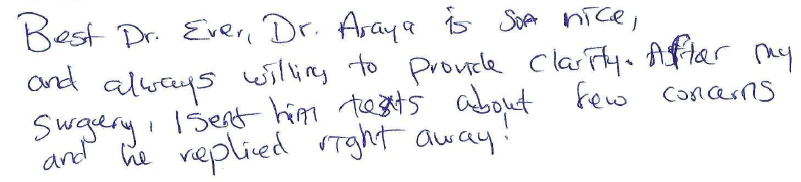 Best Dr. Ever, Dr. Araya is Soo nice,
and always willing to Provide Clarity. After my
Surgery, I Sent him texts about few concerns
and he replied right away!